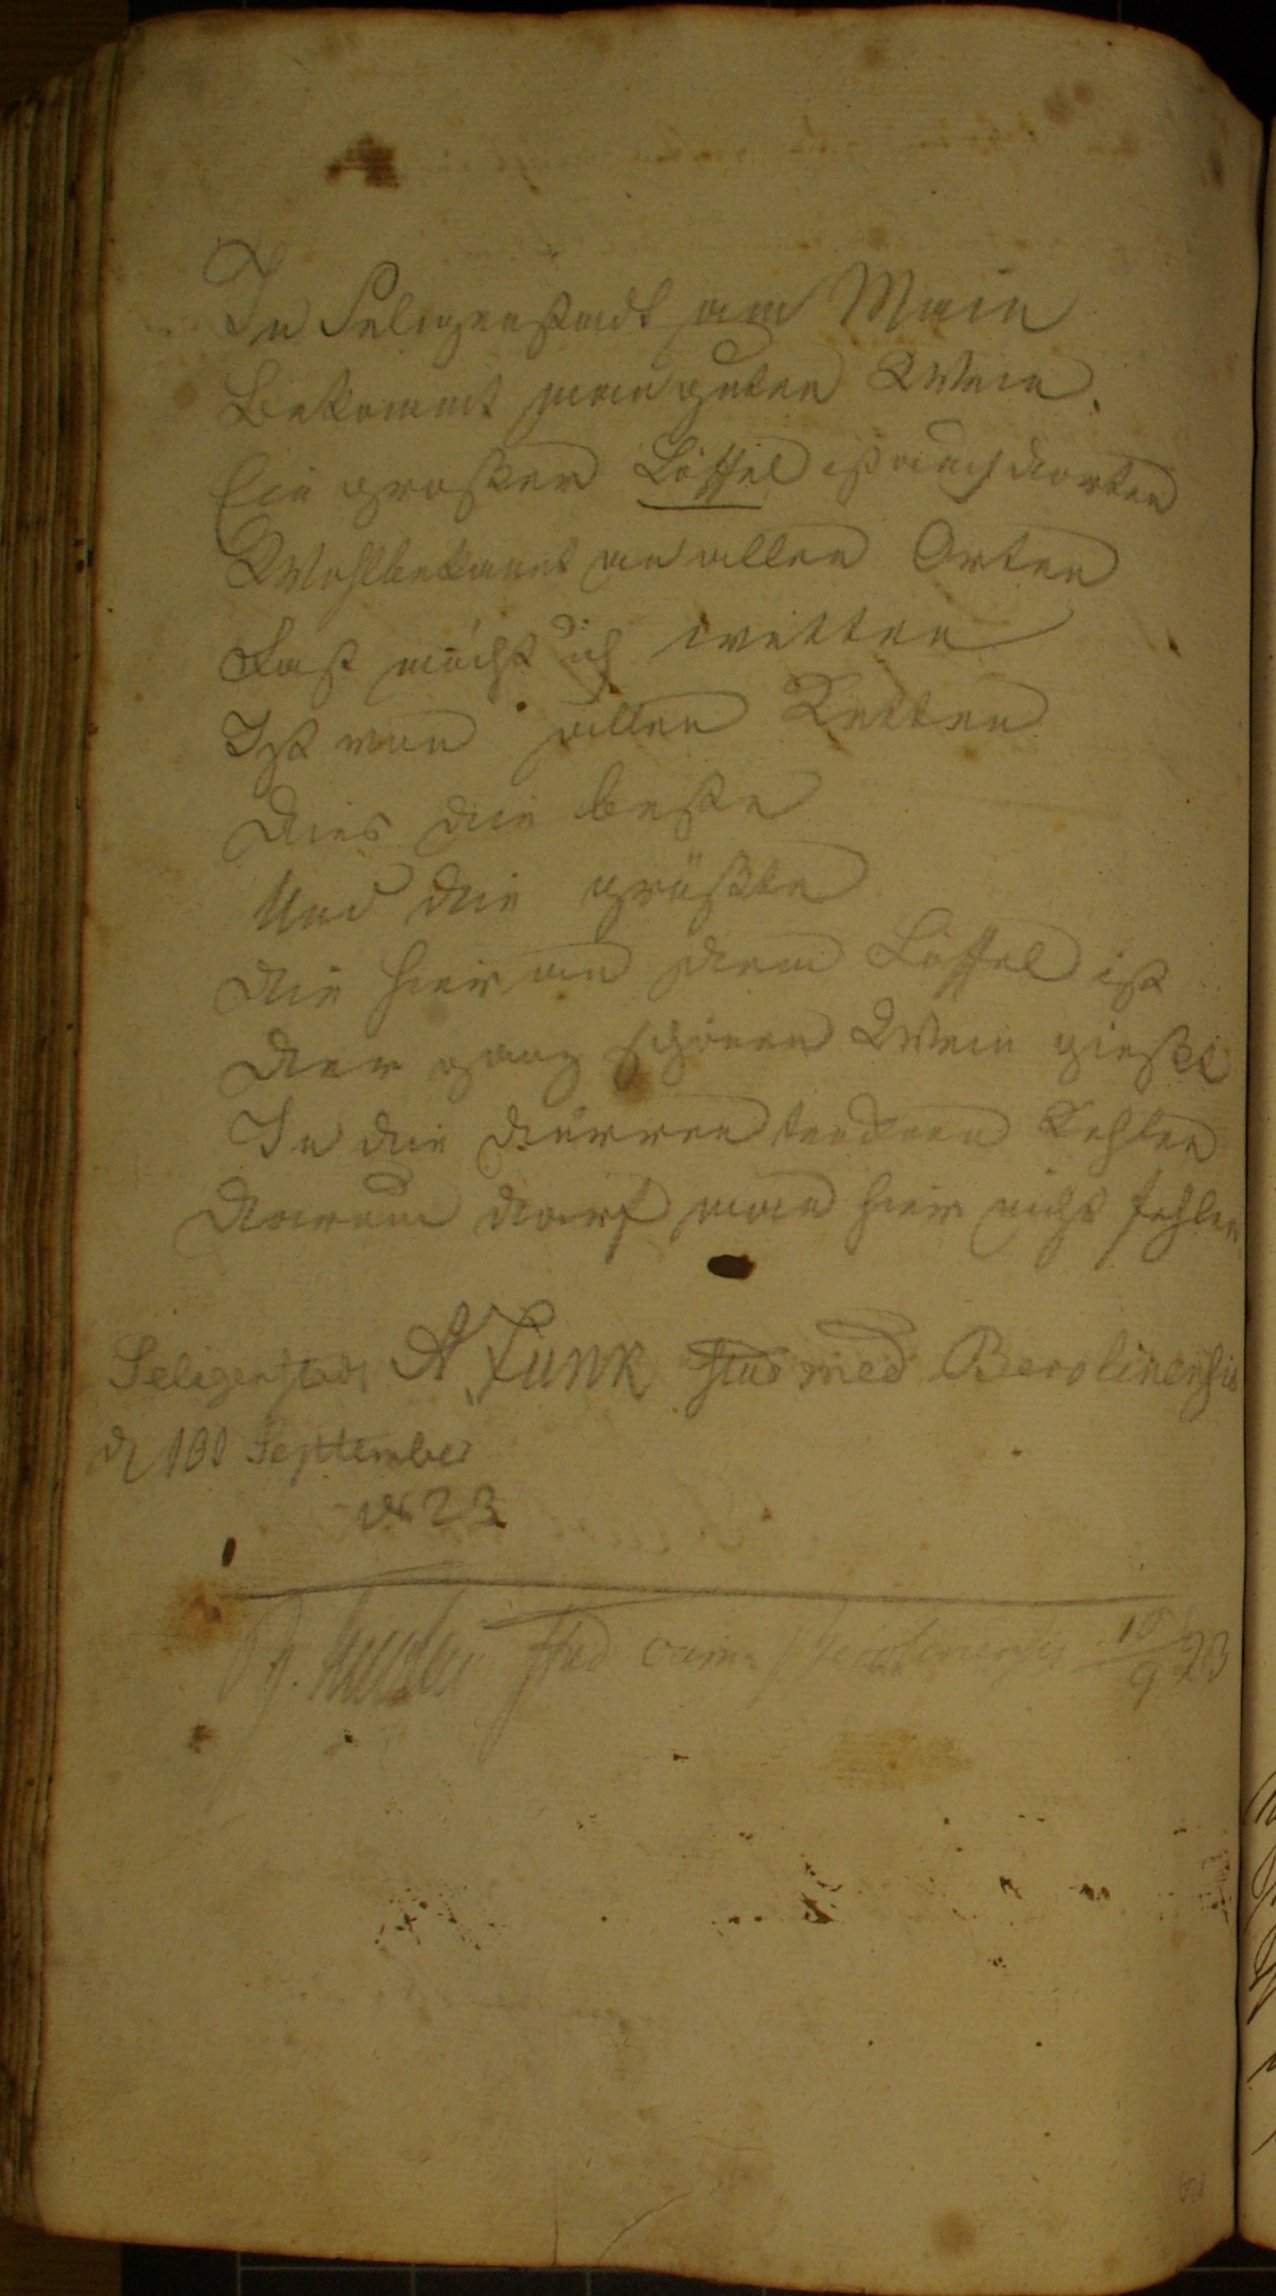 In Seligenstadt am Main
Bekommt man guten Wein.
Ein großer Löffel ist auch dorten
Wohlbekannt an allen Orten
Fast möcht ich wetten
Ist von allen Ketten
Dies die beste
Und die größte
Die hier an dem Löffel ist
Der ganz schönen Wein gießt
In die dürren trocknen Kehlen
Darum darf man hier nicht fehlen
Seligenstadt A Funk stud med Berolinensis
September
1823
stud cam. 10/9 23